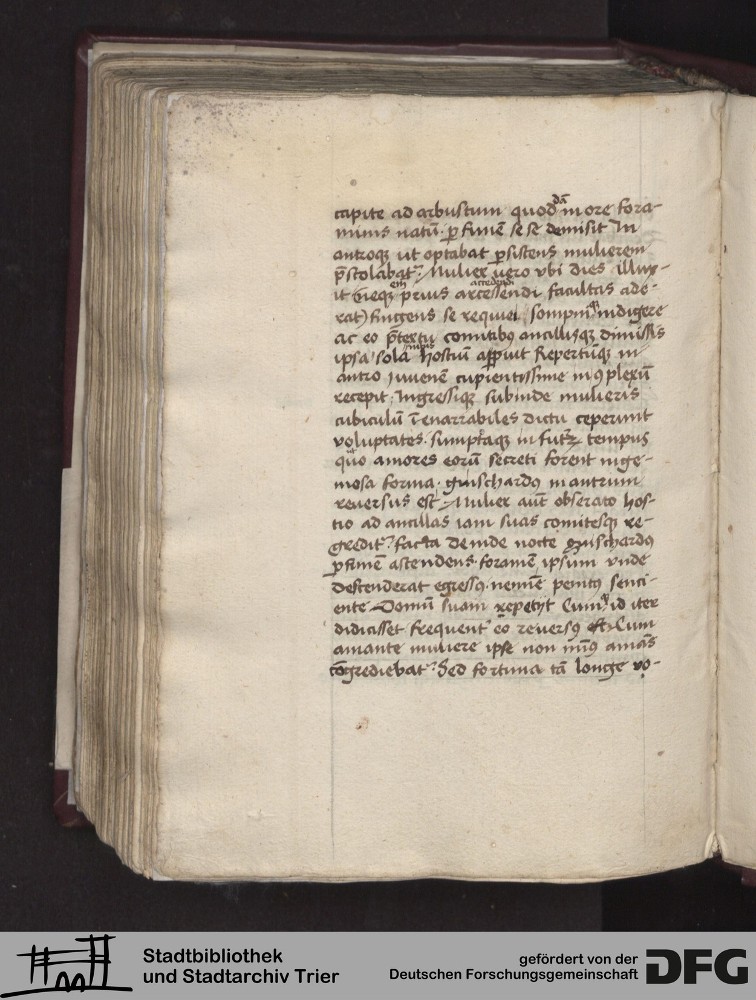 capite ad arbustum quoddā in ore fora-
minis natū. ꝑ funē se se demisit In
antroqꝫ ut optabat ꝑsistens mulierem
p̄stolabat᷑. Mulier uero vbi dies illux-
it (neqꝫ em̄ prius arcessendi accedendi facultas ade-
rat) fingens se requiei sompniqꝫ indigere
ac eo p̄textu comitibꝯ ancillisqꝫ dimissis
ipsa sola hostiū apꝑuit Repertūqꝫ in
antro iuuenē cupientissime in ꝯplexū
recepit. Ingressiqꝫ subinde mulieris
cubiculū īenarrabiles dictu ceperunt
voluptates. sumptaqꝫ in futꝝ tempus
quo amores eorū secreti forent inge-
niosa forma. guischardꝯ in antrum
reuersus est. Mulier aut̄ obserato hos-
tio ad ancillas iam suas comitesqꝫ re-
gredit᷑. facta deinde nocte guischardꝯ
ꝑ funē ascendens. foramē ipsum vnde
descenderat egressꝯ. neminē penitꝯ senci-
ente Domū suam repetijt Cumqꝫ id iter
didicisset frequent᷑ eo reuersꝯ est. Cum
amante muliere ipse non minꝯ amās
cōgrediebat᷑. Sed fortuna tā longe vo-
Stadtbibliothek
und Stadtarchiv Trier
gefördert von der
Deutschen Forschungsgemeinschaft
DFG